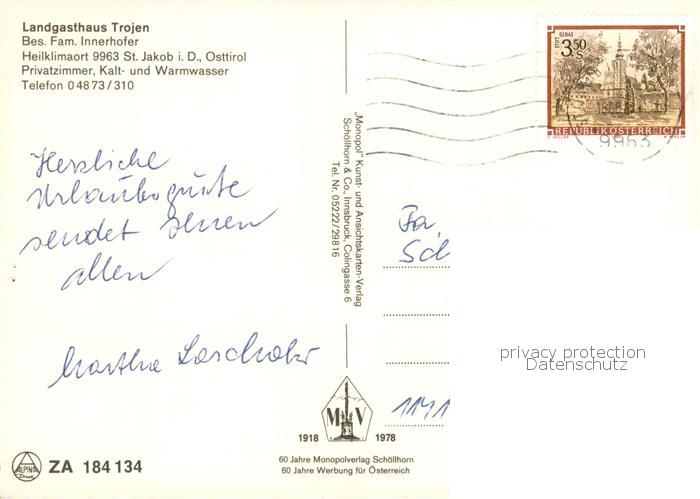 Landgasthaus Trojen
Bes. Fam. Innerhofer
Heilklimaort 9963 St. Jakob i. D., Osttirol
Privatzimmer, Kalt- und Warmwasser
Telefon 0 48 73 / 310
STIFT GERAS
3.50 S
REPUBLIK ÖSTERREICH
9963
„Monopol" Kunst- und Ansichtskarten-Verlag
Schöllhorn & Co., Innsbruck, Colingasse 6
Tel. Nr. 05222/29816
Herzliche
Urlaubsgrüße
sendet Ihnen
allen
Martha
Fa.
Sch
1141
privacy protection
Datenschutz
M V
1918 1978
60 Jahre Monopolverlag Schöllhorn
60 Jahre Werbung für Österreich
ALPINA
Druck
ZA 184 134